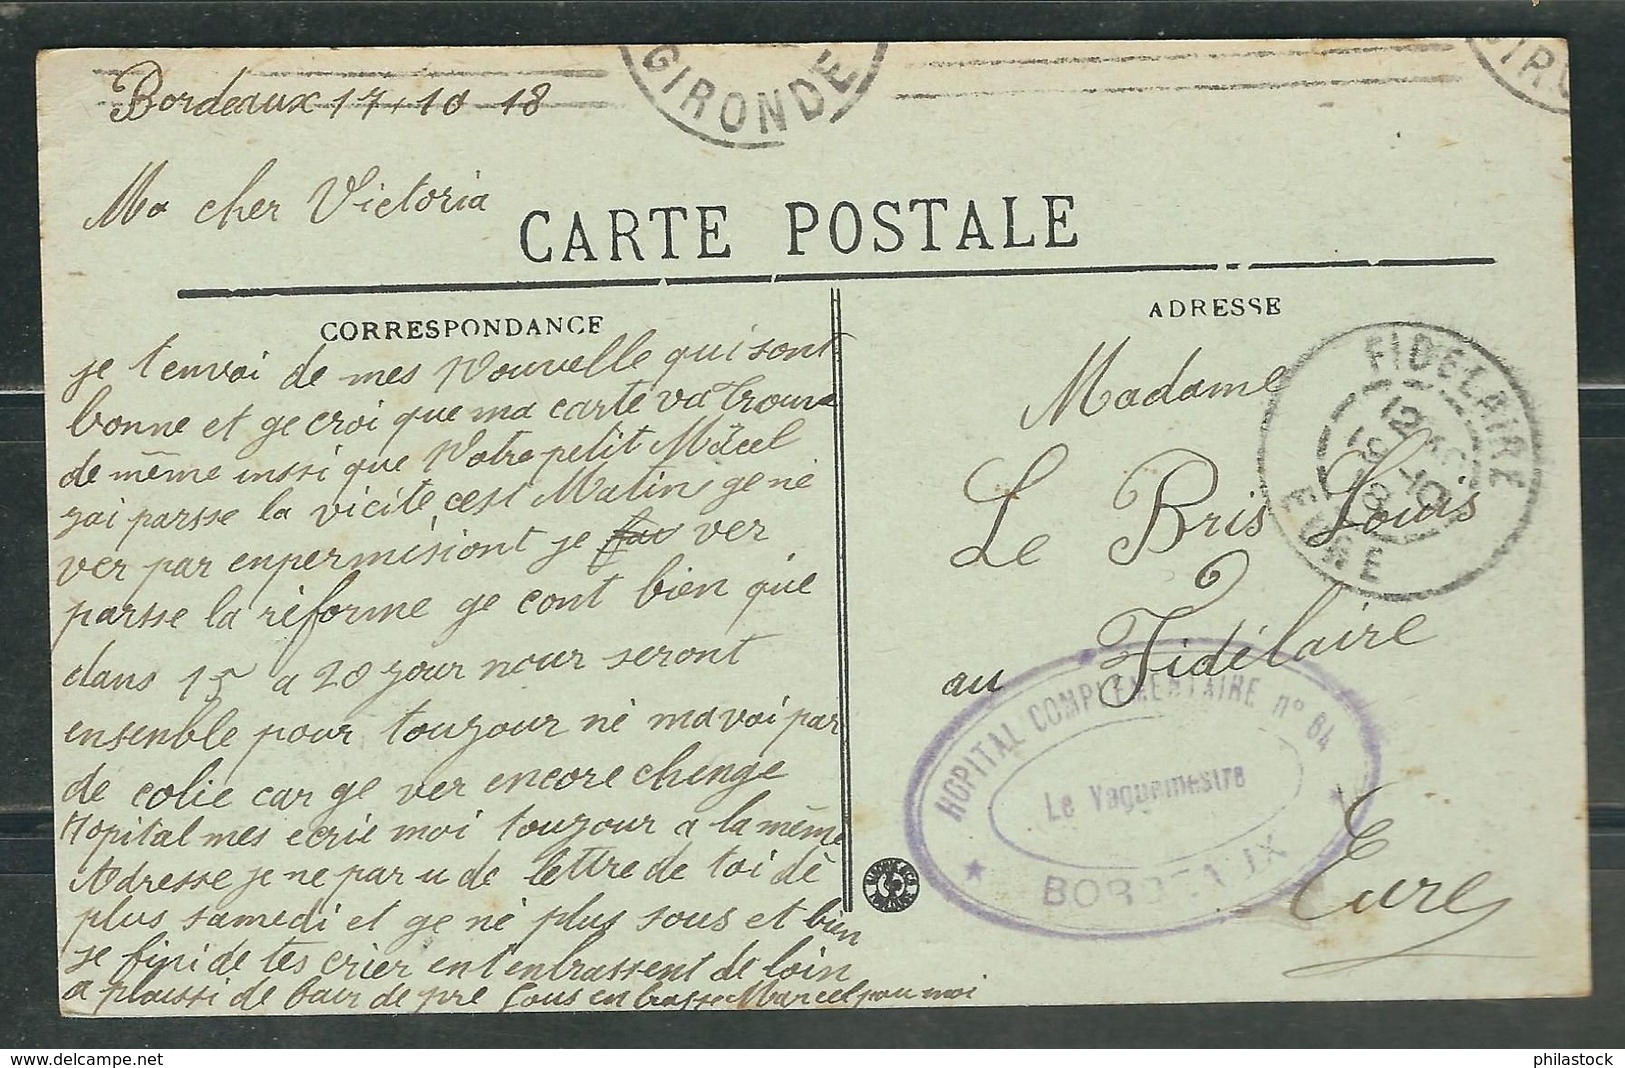 GIRONDE
GIRO
Bordeaux 17 10 18
Ma cher Victoria
CARTE POSTALE
CORRESPONDANCE
ADRESSE
je t'envoi de mes Nouvelle qui sont
bonne et ge croi que ma carte va trouve
de même inssi que Notre petit Mäcel
zai parsse la vicite cest Matin ge né
ver par enpermisiont je ver
parsse la réforme ge cont bien que
dans 15 a 20 zour nour seront
ensenble pour touzour né mavoi par
de colie car ge ver encore chenge
Hopital mes ecrie moi touzour a la même
Adresse je ne par u de lettre de toi dè
plus samedi et ge né plus sous et bien
je fini de tes crier en t'enbrassent de loin
a plaussi de bair de pré Gous enbrasse Marcel pou moi
Madame
Le Bris Louis
au Fidélaire
Eure
FIDELAIRE
EURE
HOPITAL COMPLEMENTAIRE n° 64
Le Vaguemestre
BORDEAUX
philastock